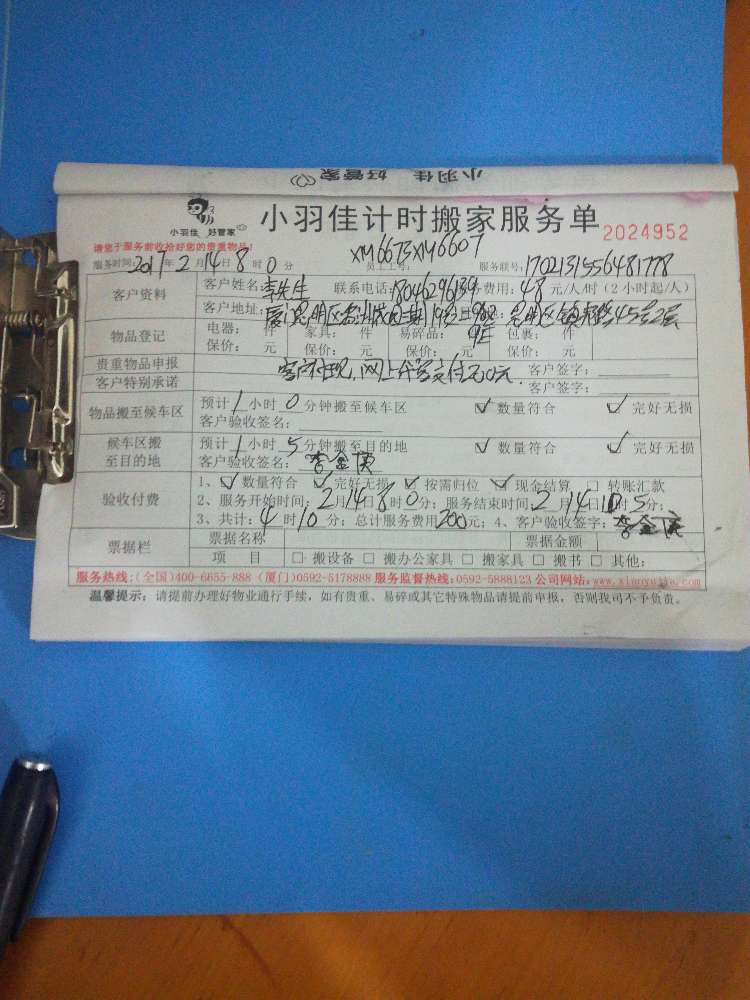 小羽佳 好管家
小羽佳 好管家
小羽佳计时搬家服务单
2024952
请您于服务前收拾好您的贵重物品!
XM6673XM6607
服务时间:2017年2月14日8时0分 员工工号: 服务联号:1702131556481778
客户资料 客户姓名:李先生 联系电话:18046296139 费用:48元/人/时(2小时起/人)
客户地址:
物品登记 电器: 件 家具: 件 易碎品: 件 包裹: 件
保价: 元 保价: 元 保价: 元 保价: 元
贵重物品申报 客户签字:
客户特别承诺 客户签字:
物品搬至候车区 预计1小时0分钟搬至候车区 ☑数量符合 ☑完好无损
客户验收签名:
候车区搬至目的地 预计1小时5分钟搬至目的地 ☑数量符合 ☑完好无损
客户验收签名:
验收付费 1、☑数量符合 ☑完好无损 ☑按需归位 ☑现金结算 □转账汇款
2、服务开始时间:2月14日8时0分;服务结束时间:2月14日10时5分;
3、共计:4时10分;总计服务费用200元;4、客户验收签字:
票据栏 票据名称 票据金额
项目 □搬设备 □搬办公家具 □搬家具 □搬书 □其他:
服务热线:(全国)400-6655-888 (厦门)0592-5178888 服务监督热线:0592-5888123 公司网站:www.xiaoyujia.com
温馨提示:请提前办理好物业通行手续,如有贵重、易碎或其它特殊物品请提前申报,否则我司不予负责。